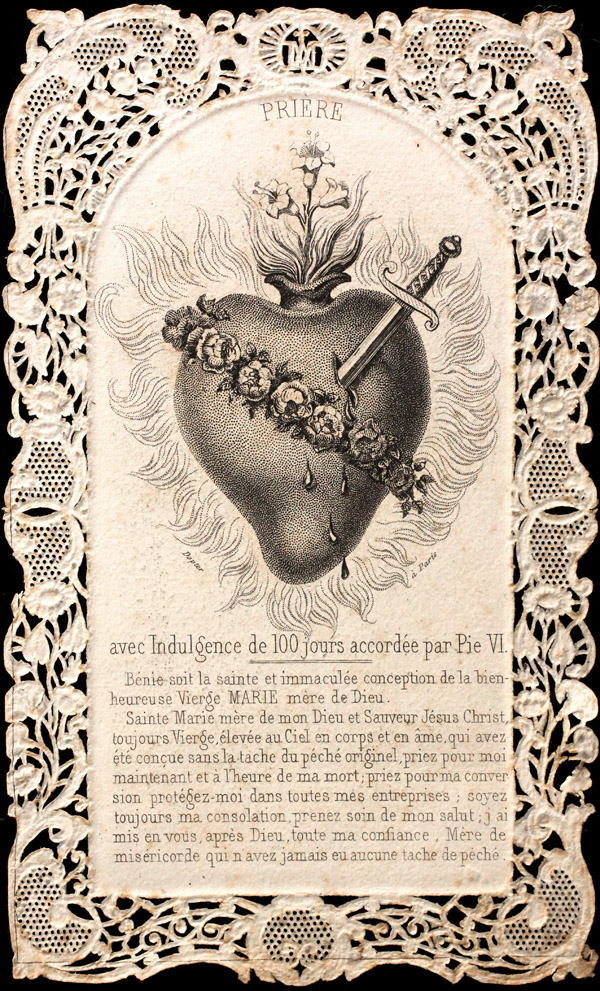 PRIERE
à Paris
avec Indulgence de 100 jours accordée par Pie VI.
Bénie soit la sainte et immaculée conception de la bien-
heureuse Vierge MARIE mère de Dieu.
Sainte Marie mère de mon Dieu et Sauveur Jésus Christ,
toujours Vierge, élevée au Ciel en corps et en âme, qui avez
été conçue sans la tache du péché originel, priez pour moi
maintenant et à l'heure de ma mort; priez pour ma conver
sion protégez-moi dans toutes mes entreprises; soyez
toujours ma consolation, prenez soin de mon salut; j ai
mis en vous, après Dieu, toute ma confiance, Mère de
miséricorde qui n avez jamais eu aucune tache de péché.